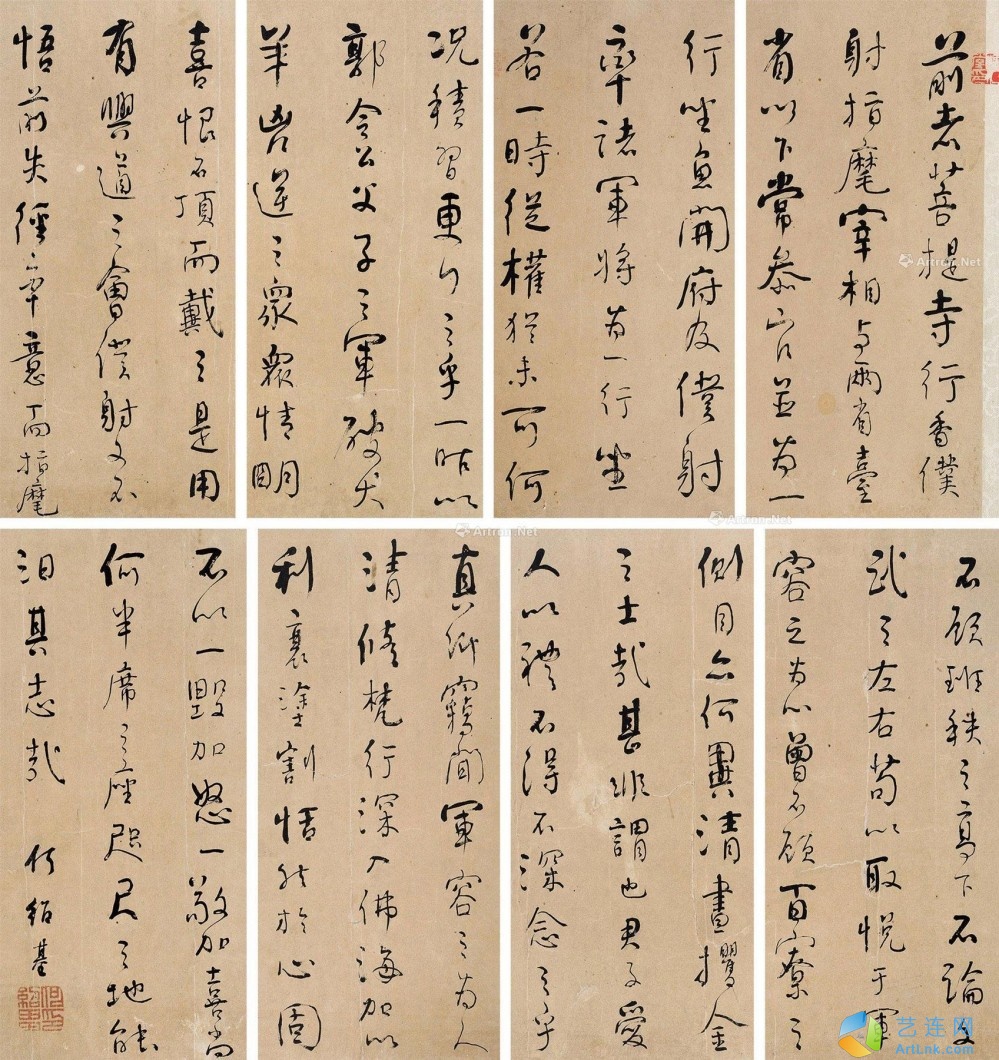 前者菩提寺行香僕
射指麾宰相与兩省臺
省以下常參官並為一
行坐魚開府及僕射
率諸軍將為一行坐
若一時從權猶未可何
況積習更行之乎一昨以
郭令公父子之軍破犬
羊凶逆之眾眾情明
喜恨不頂而戴之是用
有興道之會僕射又不
悟前失徑率意而指麾
不顧班秩之高下不論文
武之左右苟以取悅于軍
容之為心曾不顧百寮之
側目亦何異清晝攫金
之士哉甚非謂也君子愛
人以禮不得不深念之乎
真卿竊聞軍容之為人
清修梵行深入佛海加以
利衰塗割恬然於心固
不以一毀加怒一敬加喜尚
何半席之座咫尺之地能
汩其志哉 何紹基
Artron.Net
Artron.Net
Artron.Net
艺连网
ArtLnk.com